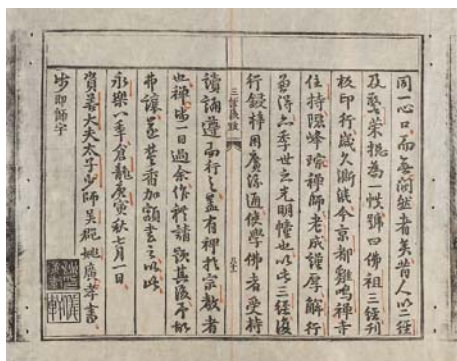 同一心口而無間然者矣昔人以二經
及警策揔為一帙號曰佛祖三經刊
板印行歲久漸今京都雞鳴禪寺
住持隱峰琮禪師老成謹厚解行
兼得亦季世之光明幢也以此三經復
行鋟梓用廣流通使學佛者受持
三經
讀誦遵而行之蓋有裨於宗教者
也禪步一日過余作禮請跋其後予
弗讓焚香加額書之以此
永樂八年倉龍庚寅秋七月一日
資善大夫太子少師吳郡姚廣孝書
步即師字